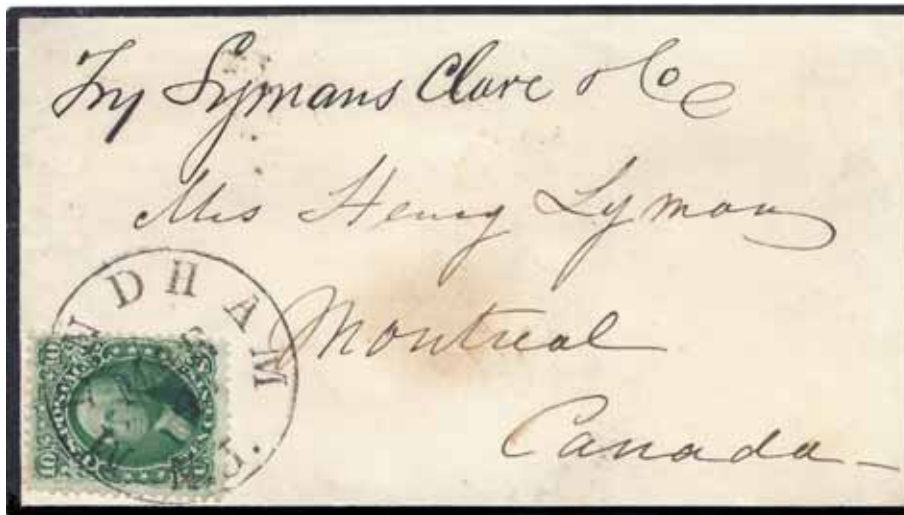 Lymans Clare & Co
Mrs Henry Lyman
Montreal
Canada
NDHAM
10